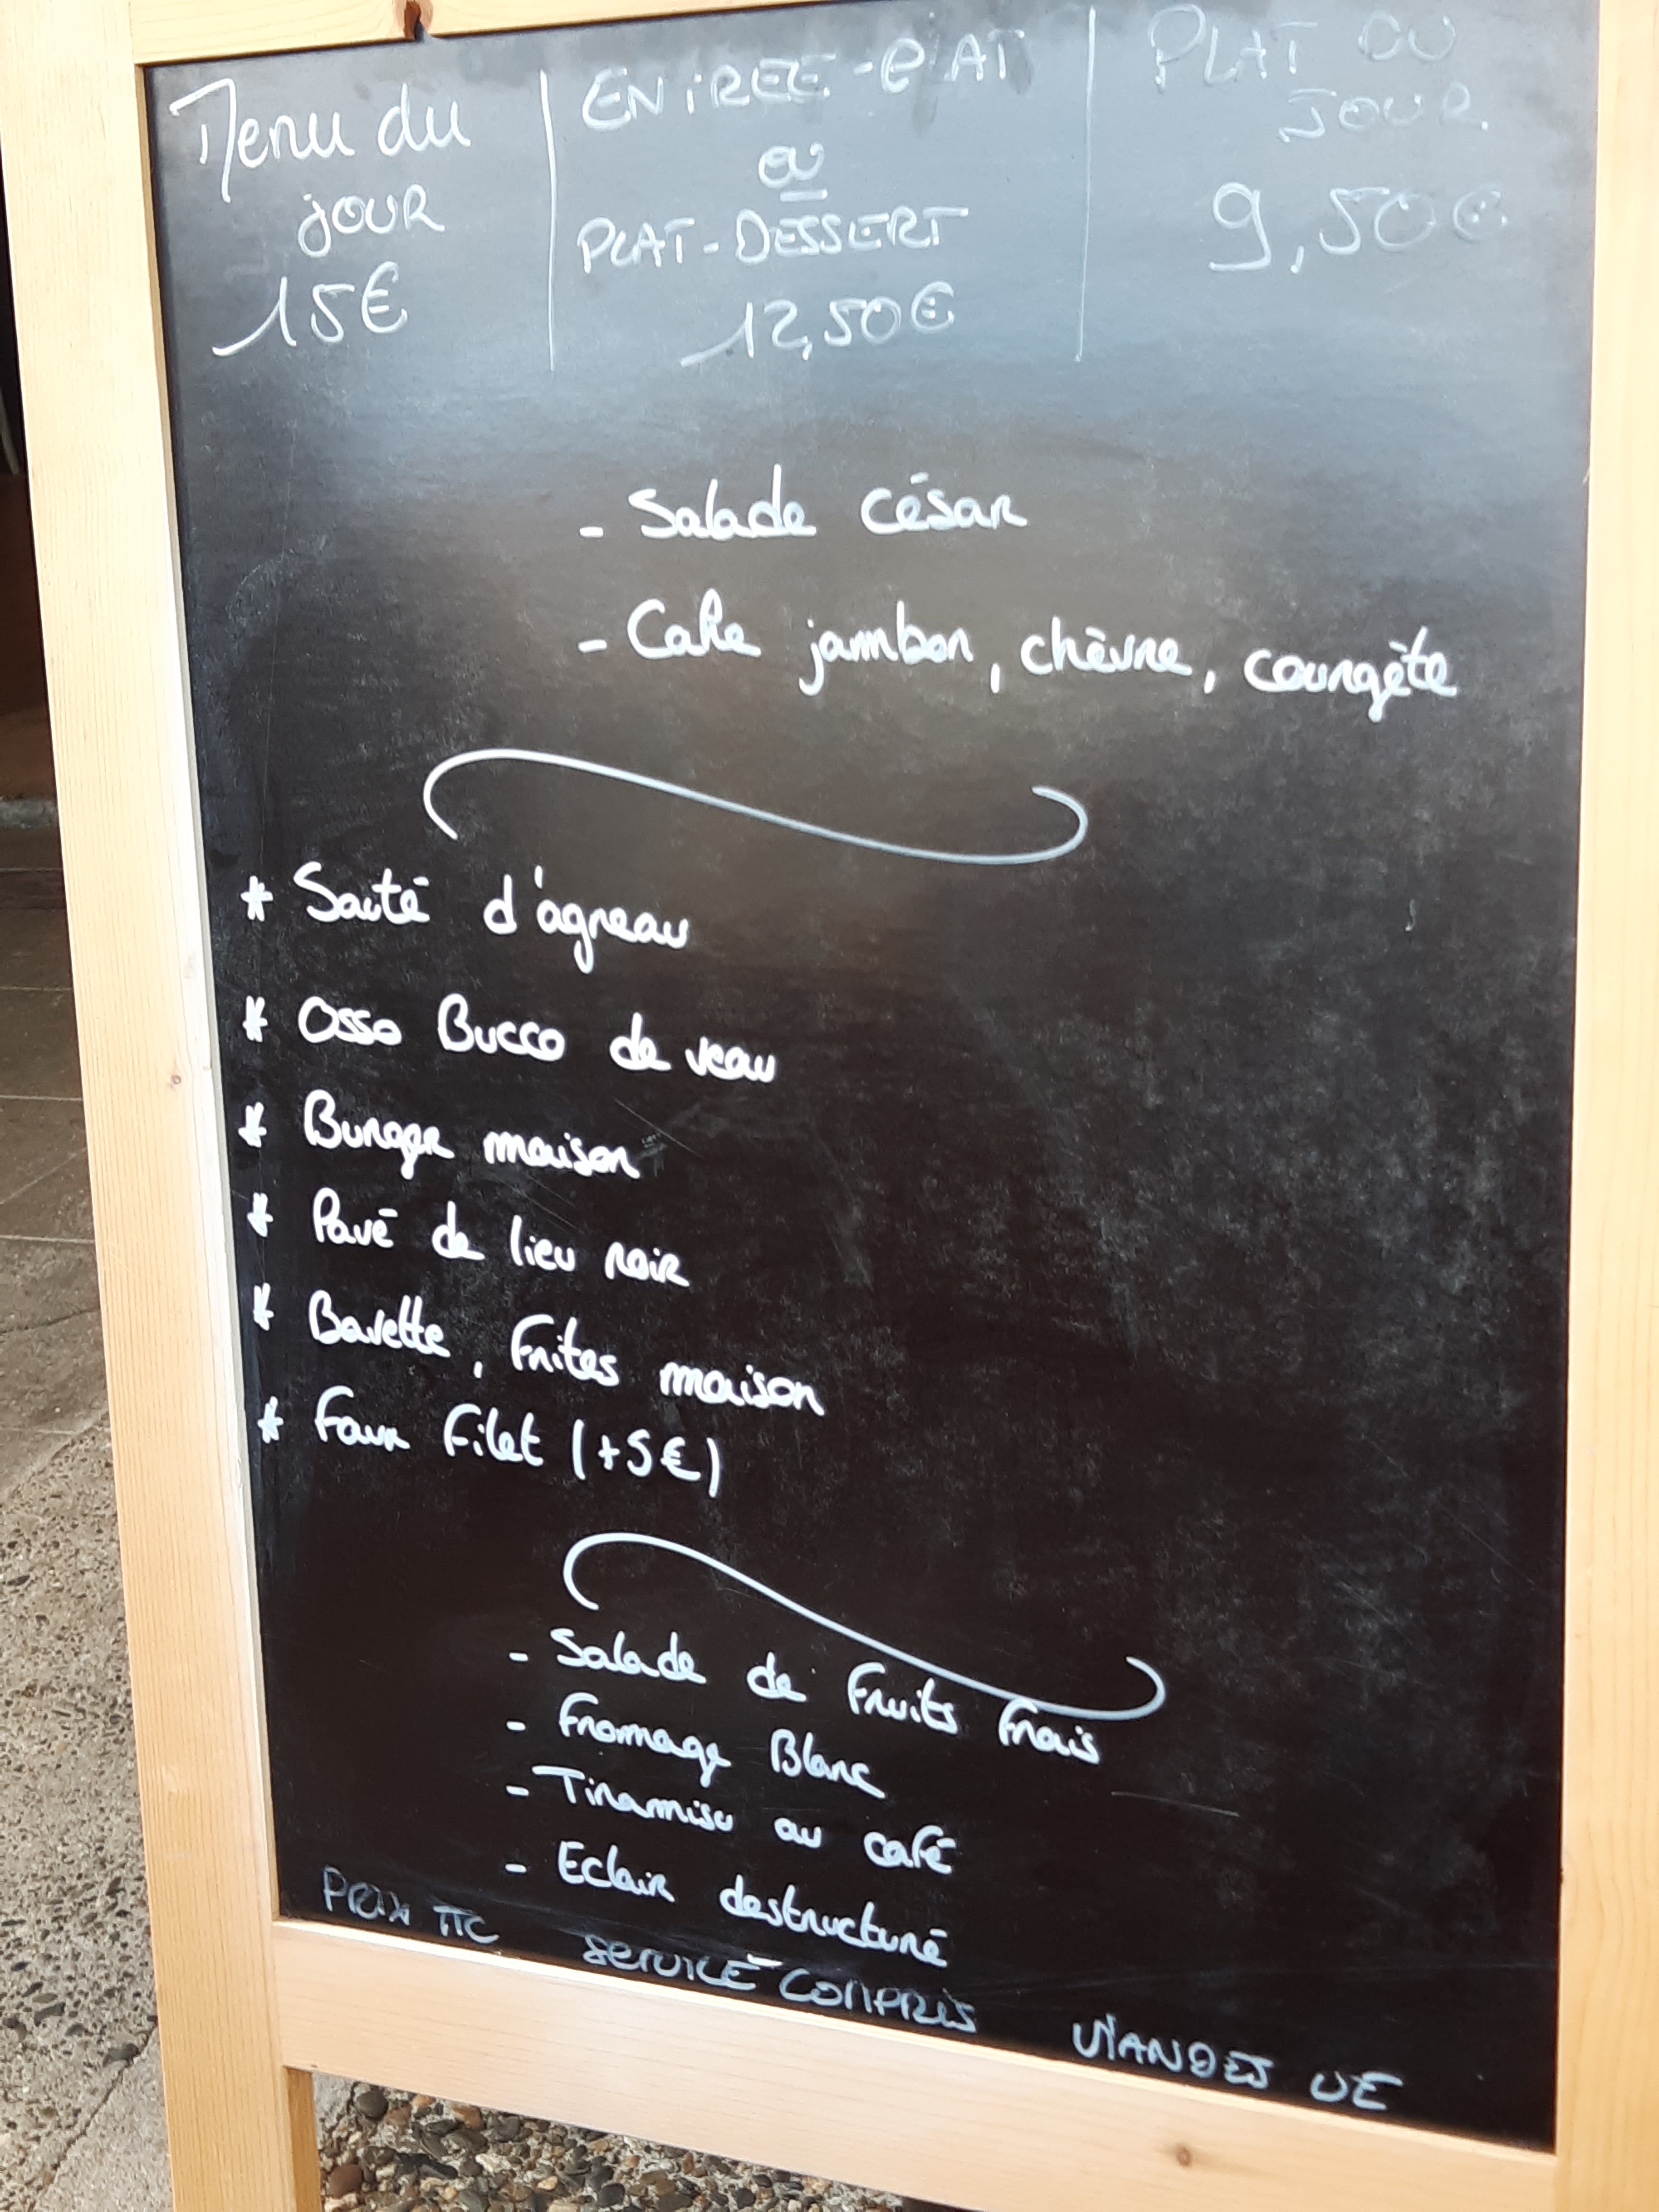 Menu du
jour
15€
ENTREE-PLAT
ou
PLAT-DESSERT
12,50€
PLAT DU
JOUR
9,50€
- Salade césar
- Cake jambon, chèvre, courgète
* Sauté d'agneau
* Osso Bucco de veau
* Burger maison
* Pavé de lieu noir
* Bavette, Frites maison
* Faux Filet (+5€)
- Salade de Fruits Frais
- Fromage Blanc
- Tiramisu au café
- Eclair destructuré
PRIX TTC SERVICE COMPRIS VIANDES UE